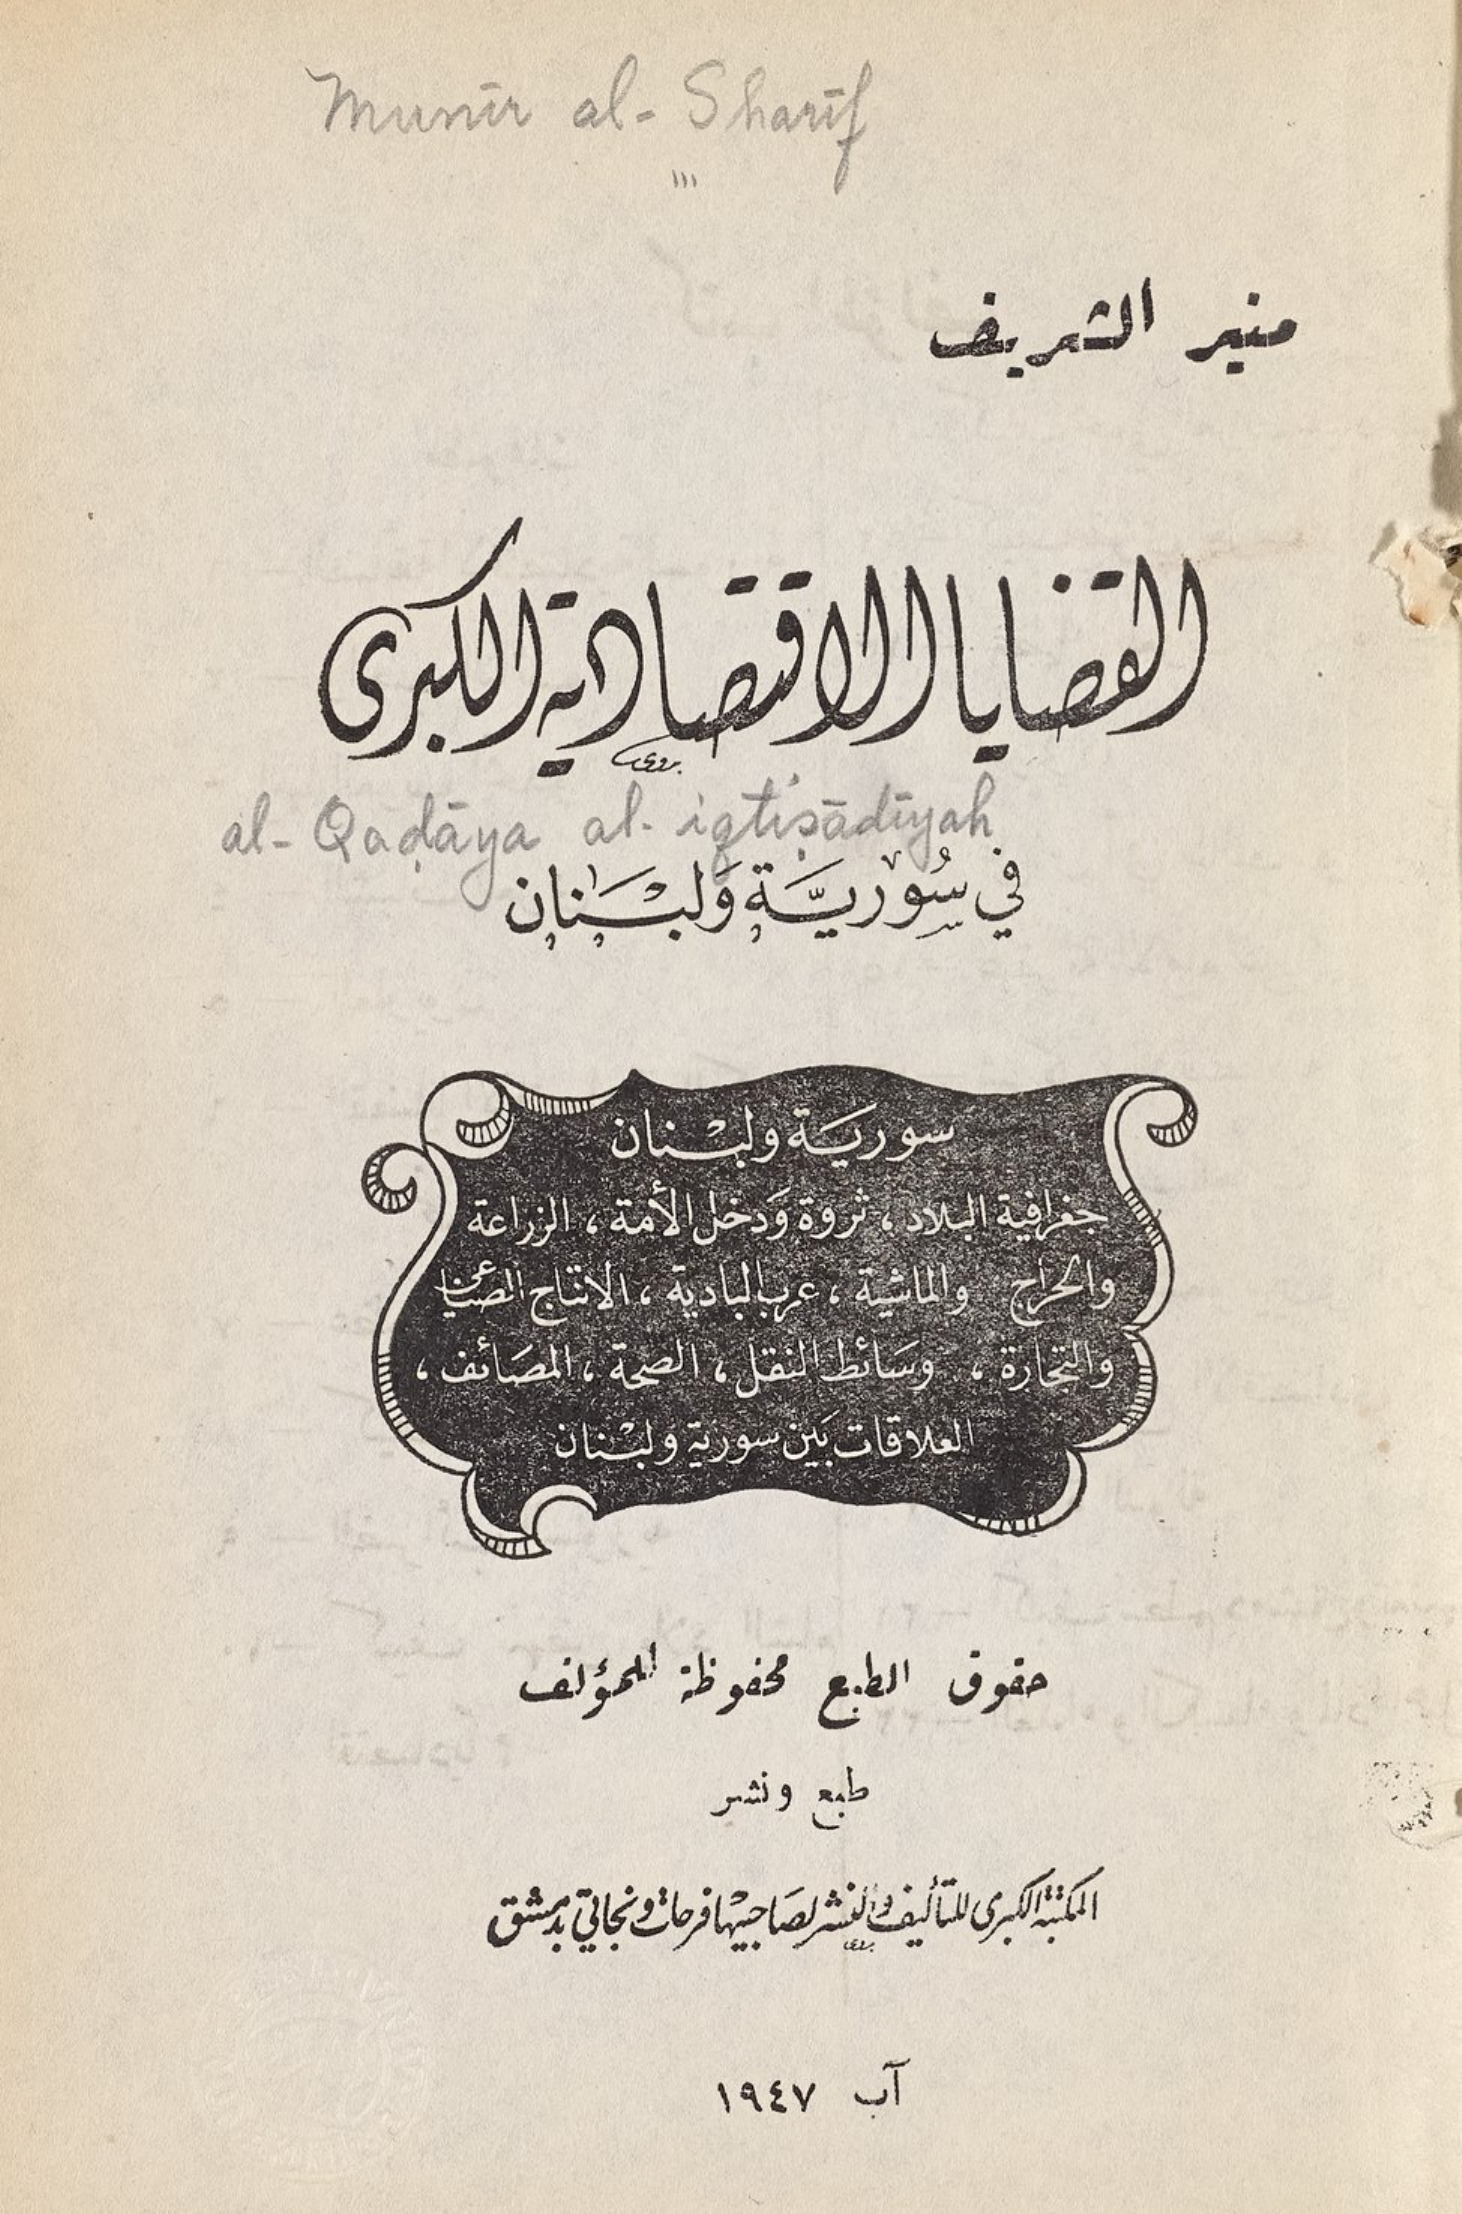 Munīr al-Sharīf
منير الشريف
القضايا الاقتصادية الكبرى
al-Qaḍāya al-iqtiṣādīyah
في سُوريَّة وَلبْنان
سوريَة ولبْنان
جغرافية البلاد ، ثروة وَدخل الأمة ، الزراعة
والحراج والماشية ، عرب البادية ، الانتاج الصناعي
والتجارة ، وسَائط النقل ، الصحة ، المصَائف ،
العلاقات بَين سورية ولبْنان
حقوق الطبع محفوظة للمؤلف
طبع ونشر
المكتبة الكبرى للتأليف والنشر لصَاحبيْها فرحات ونجاتي بدمشق
آب ١٩٤٧